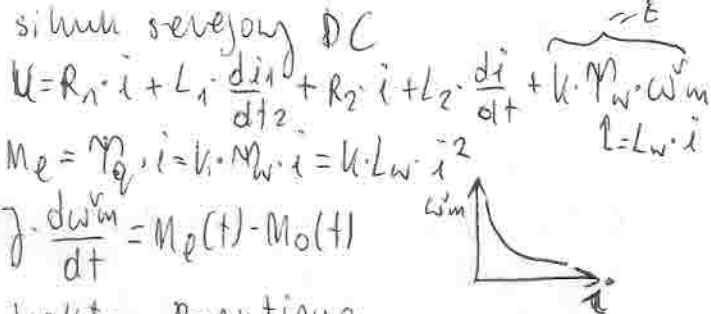 silnik szeregowy DC
= E
U=R₁·i+L₁·di₁/dt₂+R₂·i+L₂·di/dt+k·Ψw·ωm
L=Lw·i
Me=Ψq·i=k·Ψw·i=k·Lw·i²
J·dωm/dt=Me(t)-Mo(t)
ωm